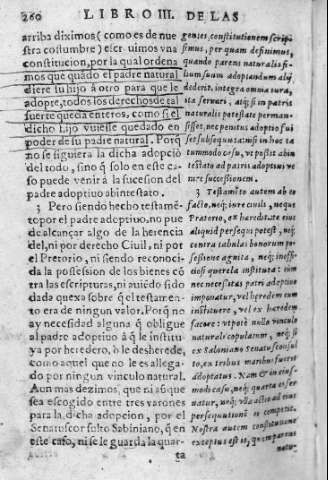 260 LIBRO III. DE LAS
arriba diximos (como es de nue
stra costumbre) escriuimos vna
constitucion, por la qual ordena
mos que quãdo el padre natural
diere su hijo à otro para que le
adopte, todos los derechos de tal
suerte queda enteros, como si el
dicho hijo vuiesse quedado en
poder de su padre natural. Porq̃
no se siguiera la dicha adopciõ
del todo, sino q̃ solo en este ca-
so puede venir à la sucession del
padre adoptiuo abintestato.
3 Pero siendo hecho testamẽ-
to por el padre adoptiuo, no pue
de alcançar algo de la herencia
del, ni por derecho Ciuil, ni por
el Pretorio, ni siendo reconoci-
da la possession de los bienes cõ
tra las escripturas, ni auiẽdo sido
dada quexa sobre q̃ el testamen-
to era de ningun valor. Porq̃ no
ay necesidad alguna q̃ obligue
al padre adoptiuo à q̃ le institu-
ya por heredero, ò le desherede,
como aquel que no le es allega-
do por ningun vinculo natural.
Aun mas dezimos, que ni aũque
sea escogido entre tres varones
para la dicha adopcion, por el
Senatusconsulto Sabiniano, q̃ en
este caso, ni se le guarda la quar-
ta
gentes, constitutionem scripsi-
simus, per quam definimus,
quando parens naturalis fi-
lium suum adoptandum alij
dederit, integra omnia iura,
ita seruari, atq; si in patris
naturalis potestate perman-
sisset, nec penitus adoptio fui
set subsequuta: nisi in hoc ta
tummodo casu, vt possit abin
testato ad patris adoptiui ve
nire successionem.
3 Testamẽto autem ab eo
facto, neq; iure ciuili, neque
Pretorio, ex hereditate eius
aliquid persequi potest, neq;
contra tabulas bonorum pos-
sessione agnita, neq; inoffi-
ciosi querela instituta: cum
nec necessitas patri adoptiuo
imponatur, vel heredem eum
instituere, vel ex heredem
facere: vtpote nullo vinculo
naturale copulatum, neq; si
ex Sabiniano Senatusconsul
to, ex tribus maribus fuerit
adoptatus. Nam & in eius-
modi casu, neq; quarta ei ser
uatur, neq; vlla actio ad eius
persequutionẽ ei competit.
Nostra autem constitutione
exceptus est is, quem parens